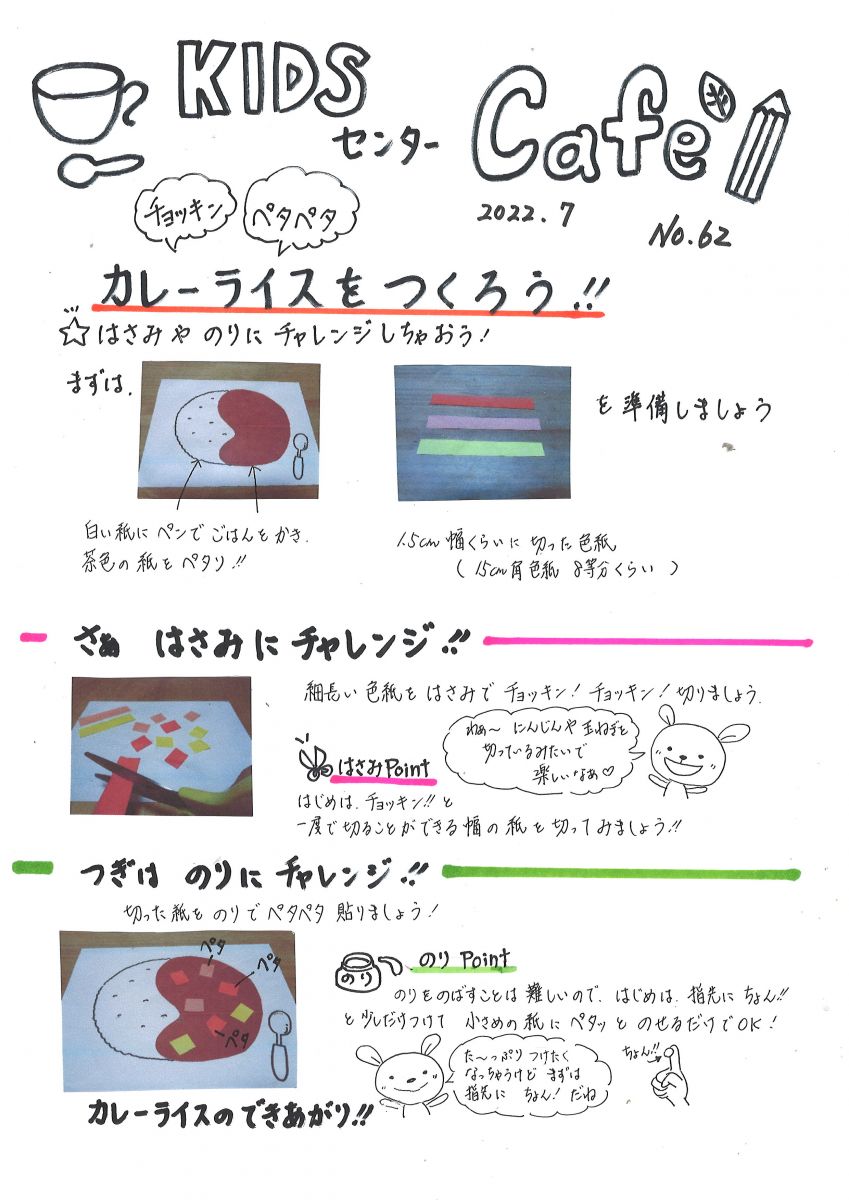 KIDS
センター
Café
チョッキン
ペタペタ
2022.7
No.62
カレーライスを つくろう!!
☆はさみや のりに チャレンジしちゃおう!
まずは、
を 準備しましょう
白い紙に ペンで ごはんをかき、
茶色の紙を ペタリ!!
1.5cm 幅くらいに 切った 色紙
( 15cm角色紙 8等分くらい )
さぁ はさみに チャレンジ!!
細長い 色紙を はさみで チョッキン! チョッキン! 切りましょう。
わぁ〜 にんじんや 玉ねぎを
切っているみたいで
楽しいなぁ♡
はさみPoint
はじめは、チョッキン!! と
一度で切ることができる幅の 紙を 切ってみましょう!!
つぎは のりに チャレンジ!!
切った 紙を のりで ペタペタ 貼りましょう!
ペタ
ペタ
ペタ
のり
のり Point
のりをのばすことは 難しいので、はじめは、指先に ちょん!!
と 少しだけつけて 小さめの 紙に ペタッと のせるだけで OK!
た〜っぷり つけたく
なっちゃうけど まずは
指先に ちょん! だね
ちょん!!
カレーライスの できあがり!!